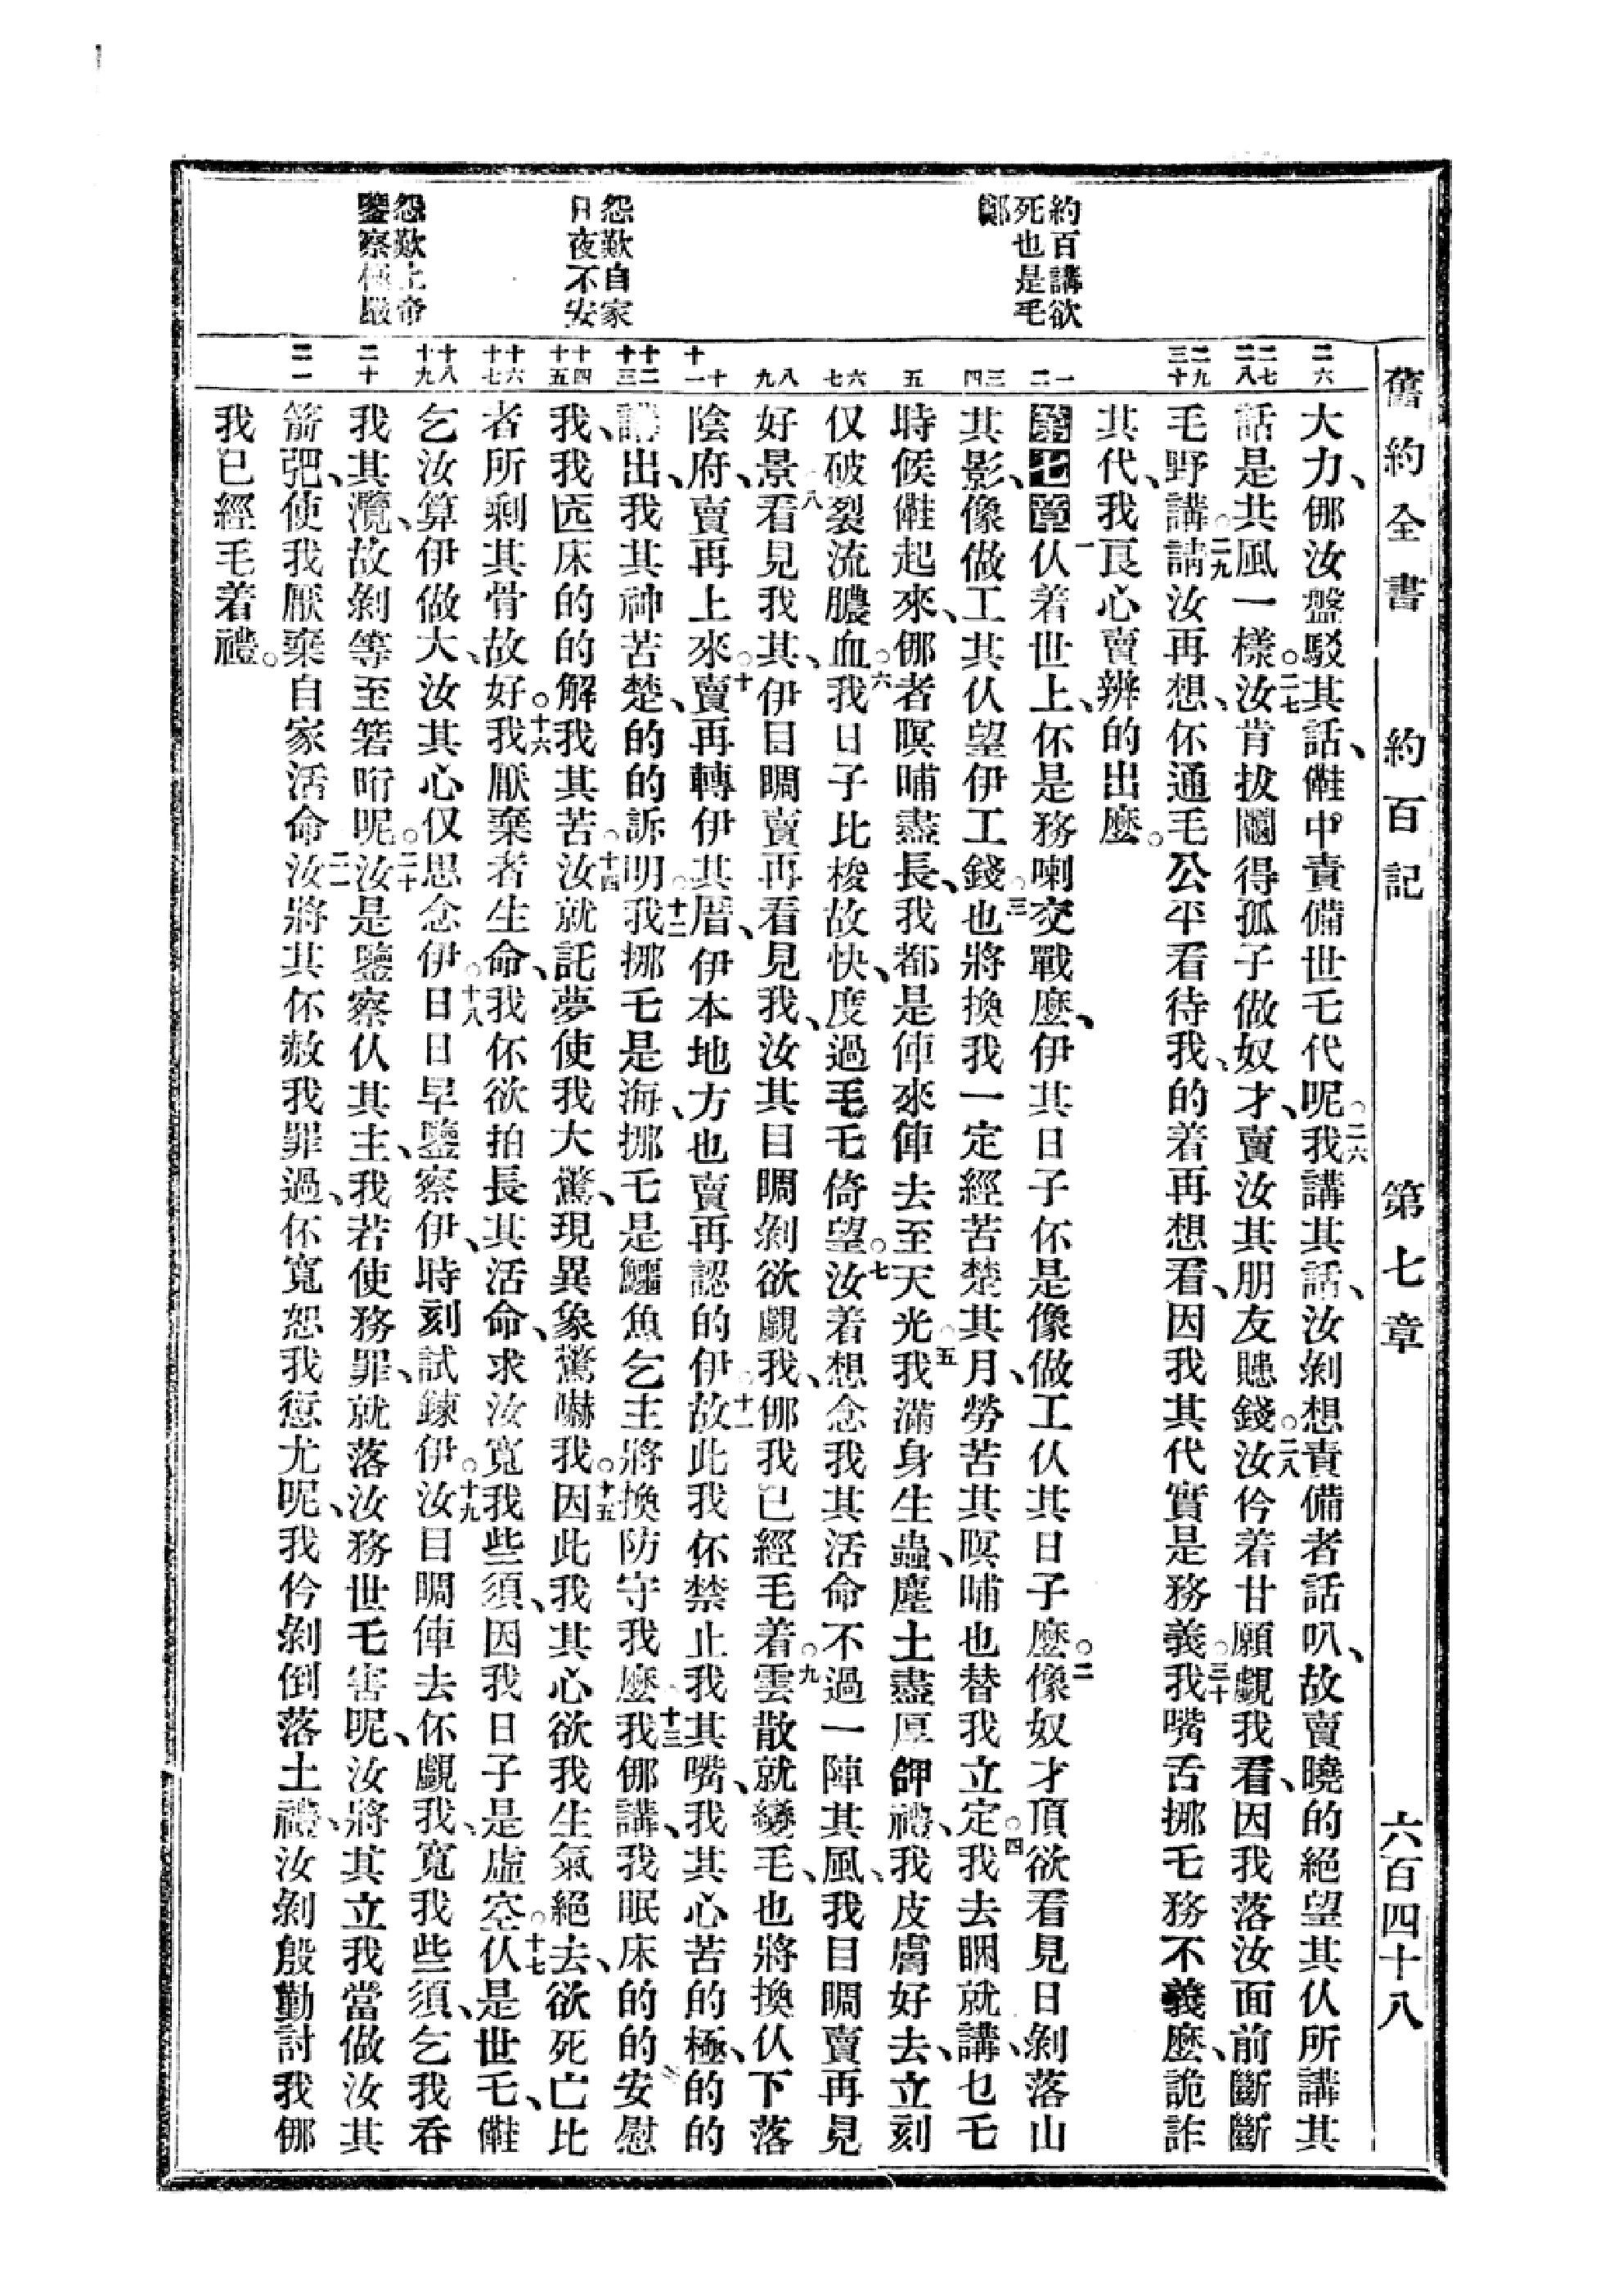 舊約全書 約百記 第七章 六百四十八
約百講欲
死也是毛
怨歎自家
日夜不安
怨歎上帝
鑒察極嚴
二六
二七 二八
二九 三十
一 二
三 四
五
六 七
八 九
十 十一
十二 十三
十四 十五
十六 十七
十八 十九
二十
二一
大力、㑚汝盤駁其話、㒕中責備世乇代呢。二六我講其話、汝剝想責備者話叭、故賣曉的絕望其伙所講其
話是共風一樣。二七汝肯拔鬮得孤子做奴才、賣汝其朋友賺錢。二八汝仱着甘願覷我看、因我落汝面前斷斷
毛野講。二九請汝再想、伓通毛公平看待我、的着再想看、因我其代實是務義。三十我嘴舌挪乇務不義麽、詭詐
其代、我良心賣辨的出麽。
第七章 一伙着世上、伓是務喇交戰麽、伊其日子伓是像做工伙其日子麽。二像奴才頂欲看見日剝落山
其影、像做工其伙望伊工錢。三也將換我一定經苦楚其月、勞苦其暝晡也替我立定。四我去睏就講、乜毛
時候㒕起來、㑚者暝晡盡長、我都是俥來俥去至天光。五我滿身生蟲、塵土盡厚𩚵禮、我皮膚好去、立刻
仅破裂流膿血。六我日子比梭故快、度過毛乇倚望。七汝着想念我其活命不過一陣其風、我目睭賣再見
好景。八看見我其、伊目睭賣再看見我、汝其目睭剝欲覷我、㑚我已經毛着。九雲散就變毛、也將換伙下落
陰府、賣再上來。十賣再轉伊其厝、伊本地方也賣再認的伊。十一故此我伓禁止我其嘴、我其心苦的極、的的
講出、我其神苦楚、的的訴明。十二我挪乇是海、挪乇是鱷魚、乞主將換防守我麽。十三我㑚講、我眠床的的安慰
我、我匟床的的解我其苦。十四汝就託夢使我大驚、現異象驚嚇我。十五因此我其心欲我生氣絕去、欲死亡比
者所剩其骨故好。十六我厭棄者生命、我伓欲拍長其活命、求汝寬我些須、因我日子是虛空。十七伙是世乇、㒕
乞汝算伊做大、汝其心仅思念伊。十八日日早鑒察伊、時刻試鍊伊。十九汝目睭俥去伓覷我、寬我些須、乞我吞
我其瀾、故剝等至箬時呢。二十汝是鑒察伙其主、我若使務罪、就落汝務世乇害呢、汝將其立我當做汝其
箭弝、使我厭棄自家活命。二一汝將其伓赦我罪過、伓寬恕我愆尤呢、我仱剝倒落土禮、汝剝殷勤討我、㑚
我已經毛着禮。